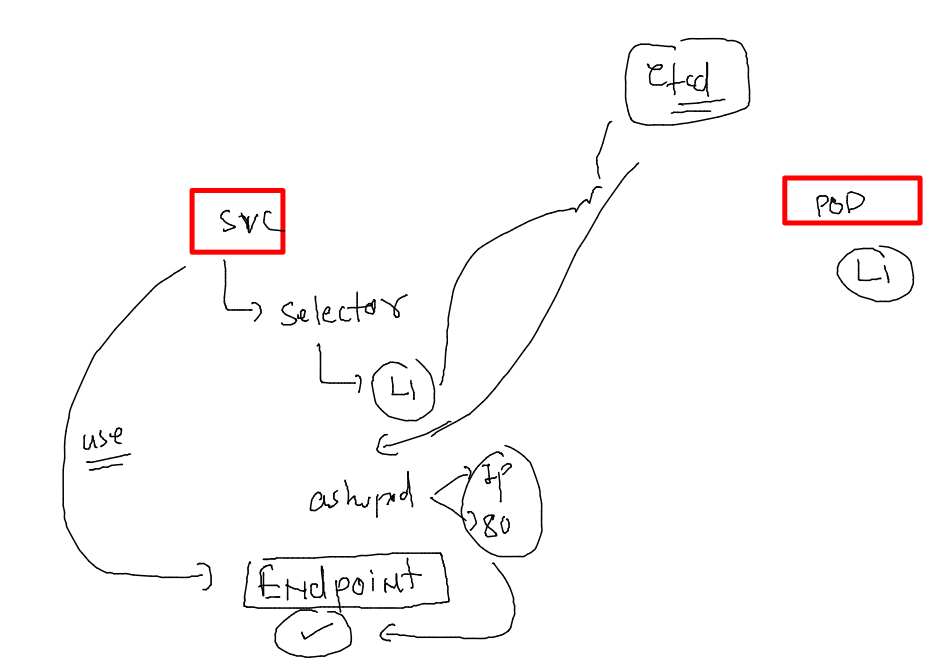 Etcd
POD
SVC
L1
Selector
L1
use
ashupod
IP
80
Endpoint